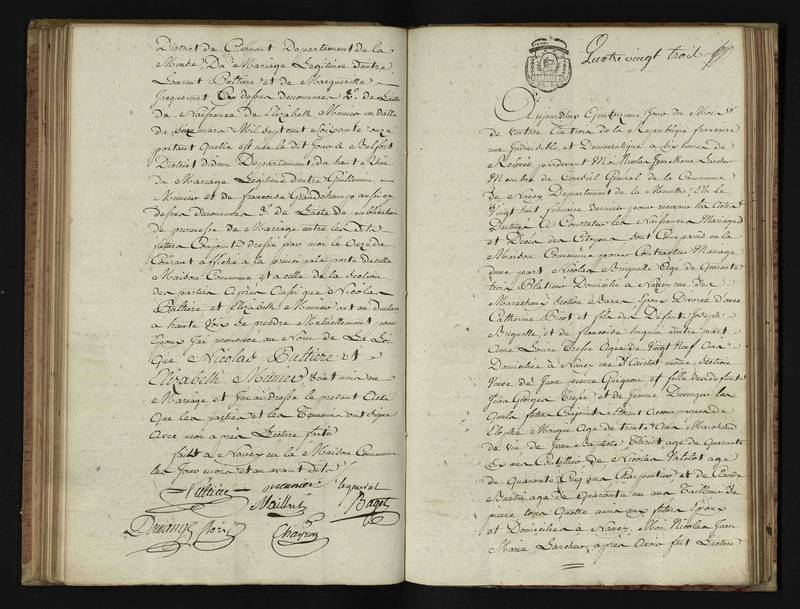 District de Clermont Departement de la
Meuse, Du Mariage Legitime d'entre
Laurent Pultiere et de Marguerite
Jacqueminot Cy dessus denommée 2°. de L'acte
de Naissance de Elizabeth Munier en datte
du Seize mars Mil Sept cent Soixante onze
portant Quelle est née le dit Jour a Belfort
District idem Departement du haut Rhin
de Mariage Légitime d'entre Guillaume
Munier et de francoise Grandchamp aussi cy
dessus denommée 3°. de L'acte de publication
de promesse de Mariage entre les dits
futurs Conjoints dressé par moi le Onze du
Courant affiché a la principale porte de cette
Maison Commune et a celle de la Section
des parties Apres Aussi que Nicolas
Pultiere et Elizabeth Munier ont eu declaré
a haute voix Se prendre Mutuellement pour
Epoux J'ai prononcé au Nom de La Loi
que Nicolas Pultiere et
Elizabeth Munier, Sont unis en
Mariage et J'ai dressé le present Acte
Que les parties et les Temoins ont Signé
Avec moi apres Lecture faite
fait a Nancy en la Maison Commune
les Jour mois et an avant dits
Pultiere munier
Maillart Bagot
Domange Chayron
Quatre vingt trois
Aujourdhuy Quatorzieme Jour du Mois
de ventose L'an trois de la Republique francaise
une Indivisible et Democratique a Six heures de
Relevée pardevant Moi Nicolas Jean Marie
Membre du Conseil General de la Commune
de Nancy Departement de la Meurthe Elu le
Vingt huit frimaire dernier pour recevoir les Actes
Destinés a Constater les Naissances Mariages
et Décès des Citoyens Sont Comparus en la
Maison Commune pour Contracter Mariage
d'une part, Nicolas Briquelle Agé de Quarante
trois Domicilié a Nancy rue des
Marechaux Section Epoux Divorcé d'avec
Catherine et fils des Defunt Joseph
Briquelle, et de francoise d'autre part
Anne Louise Agée de Vingt Neuf Ans
Domiciliée a Nancy meme Section
Veuve de Jean pierre et fille de defunt
Jean Georges et de Jeanne les
Quels futurs Conjoints Etoient Accompagnés de
Mougin Agé de trente Ans Marchand
de vin de Jean Baptiste Thiriet agé de Quarante
Six ans de Nicolas agé
de Quarante Cinq ans Charpentier et de Claude
agé de Quarante un ans Tailleur de
pierre tous Quatre amis des futurs Epoux
et Domiciliés a Nancy, Moi Nicolas Jean
Marie apres Avoir fait Lecture